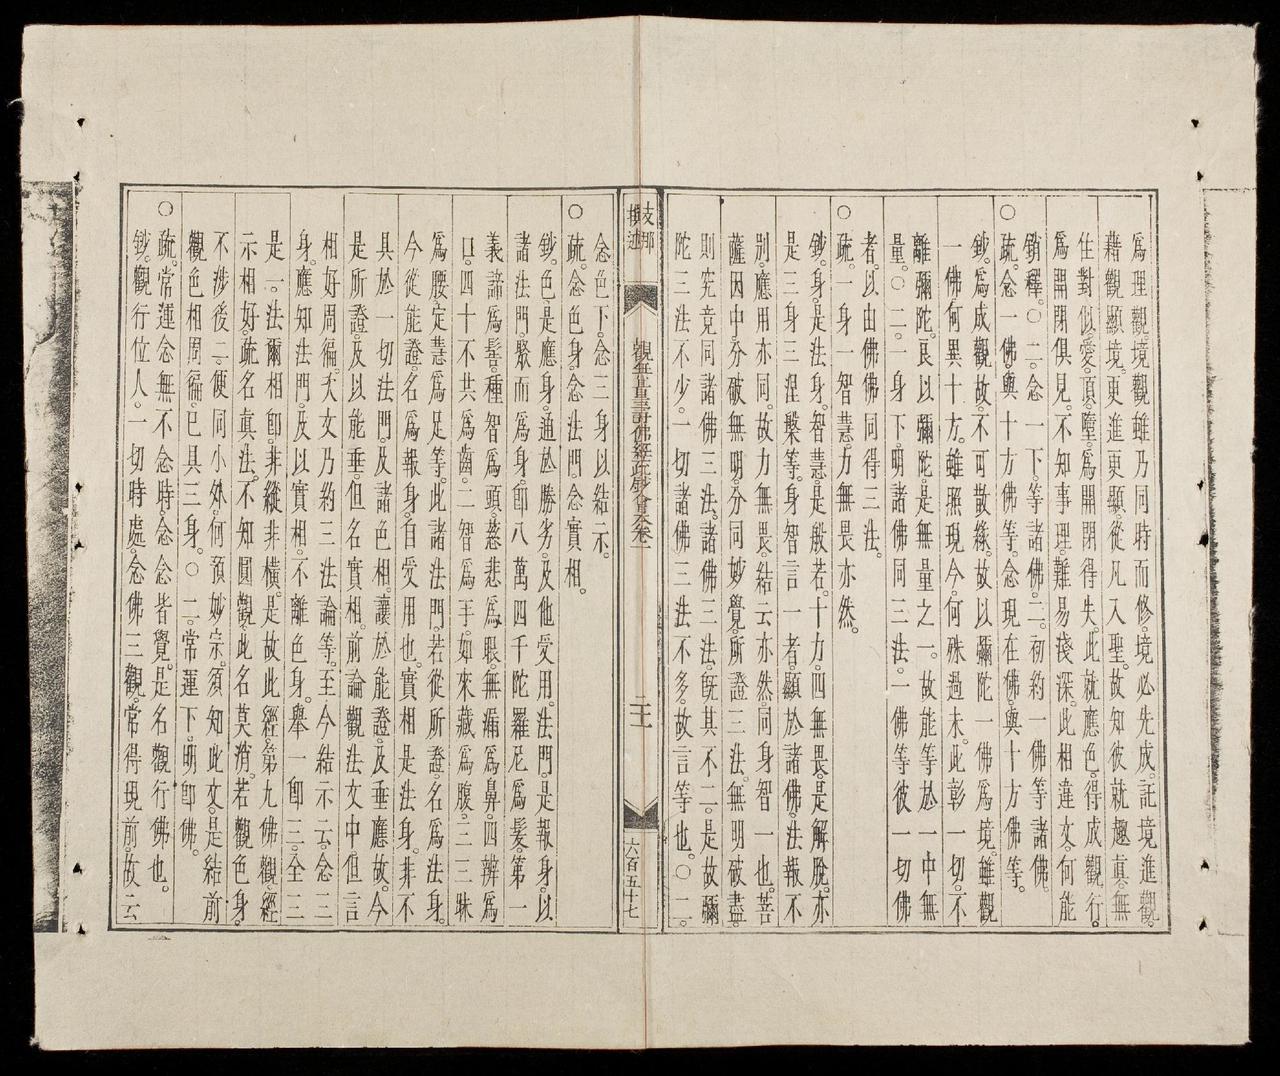 爲理觀境觀雖乃同時而修境必先成託境進觀
藉觀顯境更進更顯從凡入聖故知彼就趣真無
住對似愛頂墮爲開閉得失此就應色得成觀行
爲開閉俱見不知事理難易淺深此相違文何能
銷釋○二念一下等諸佛二初約一佛等諸佛
○疏念一佛與十方佛等念現在佛與十方佛等
鈔爲成觀故不可散緣故以彌陀一佛爲境雖觀
一佛何異十方雖照現今何殊過未此彰一切不
離彌陀良以彌陀是無量之一故能等於一中無
量○二一身下明諸佛同三法一佛等彼一切佛
者以由佛佛同得三法
○疏一身一智慧力無畏亦然
鈔身是法身智慧是般若十力四無畏是解脫亦
是三身三涅槃等身智言一者顯於諸佛法報不
別應用亦同故力無畏結云亦然同身智一也菩
薩因中分破無明分同妙覺所證三法無明破盡
則究竟同諸佛三法諸佛三法既其不二是故彌
陀三法不少一切諸佛三法不多故言等也○二
支那撰述
觀無量壽佛經疏鈔會本卷一
二十一
六百五十七
念色下念三身以結示
○疏念色身念法門念實相
鈔色是應身通於勝劣及他受用法門是報身以
諸法門聚而爲身卽八萬四千陀羅尼爲髮第一
義諦爲髻種智爲頭慈悲爲眼無漏爲鼻四辨爲
口四十不共爲齒二智爲手如來藏爲腹三三昧
爲腰定慧爲足等此諸法門若從所證名爲法身
今從能證名爲報身自受用也實相是法身非不
具於一切法門及諸色相讓於能證及垂應故今
是所證及以能垂但名實相前論觀法文中但言
相好周徧大女乃約三法論等至今結示云念三
身應知法門及以實相不離色身舉一卽三全三
是一法爾相卽非縱非橫是故此經第九佛觀經
示相好疏名真法不知圓觀此名莫消若觀色身
不涉後二便同小外何預妙宗須知此文是結前
觀色相周徧已具三身○二常運下明卽佛
○疏常運念無不念時念念皆覺是名觀行佛也
鈔觀行位人一切時處念佛三觀常得現前故云